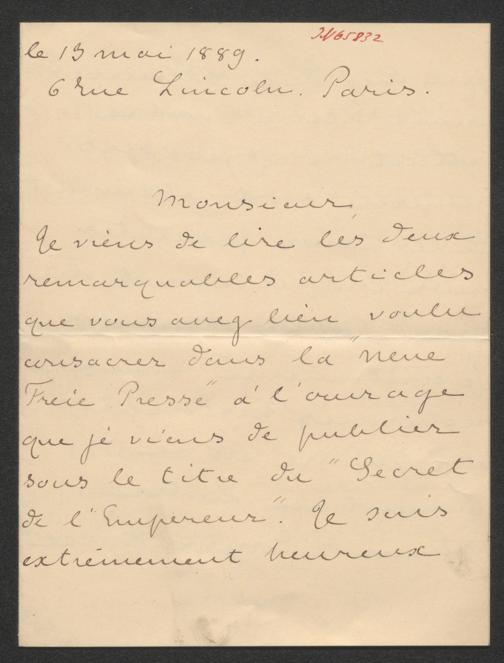 IN 65832
le 13 mai 1889.
6 rue Lincoln. Paris.
Monsieur
Je viens de lire les deux
remarquables articles
que vous avez bien voulu
consacrer dans la "neue
Freie Presse" à l'ouvrage
que je viens de publier
sous le titre du "Secret
de l'Empereur". Je suis
extrêmement heureux